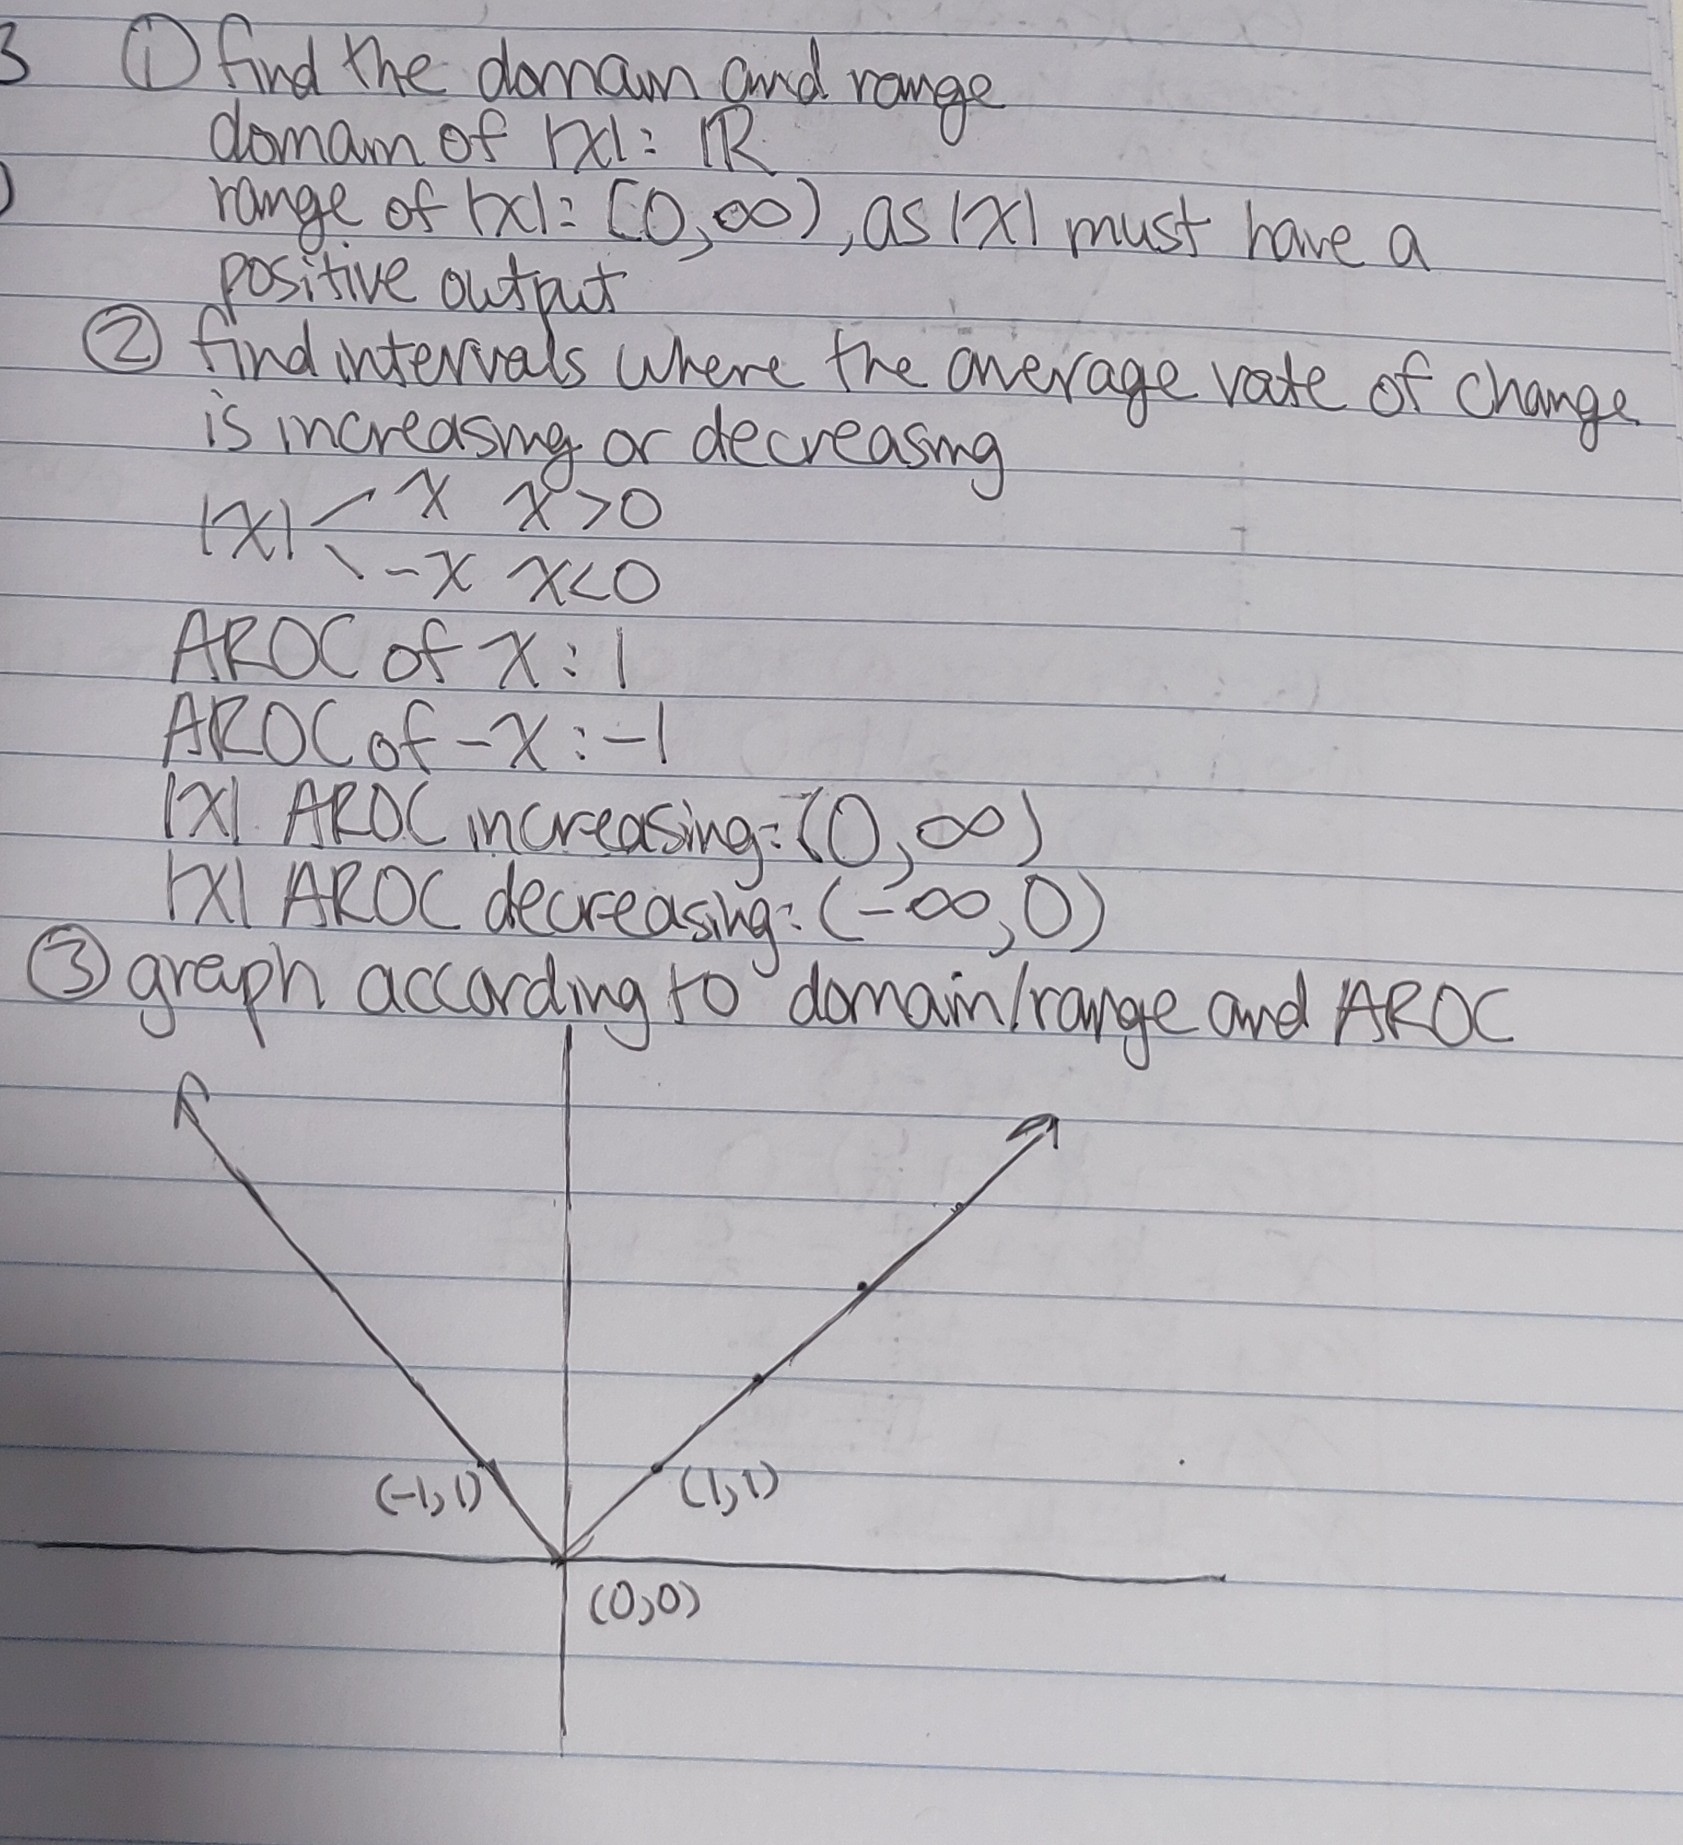 3 ① find the domain and range
domain of |x|: ℝ
range of |x|: [0,∞), as |x| must have a
positive output
② find intervals where the average rate of change
is increasing or decreasing
x x>0
|x|
-x x<0
AROC of x: 1
AROC of -x: -1
|x| AROC increasing: (0,∞)
|x| AROC decreasing: (-∞,0)
③ graph according to domain/range and AROC
(-1,1) (1,1)
(0,0)